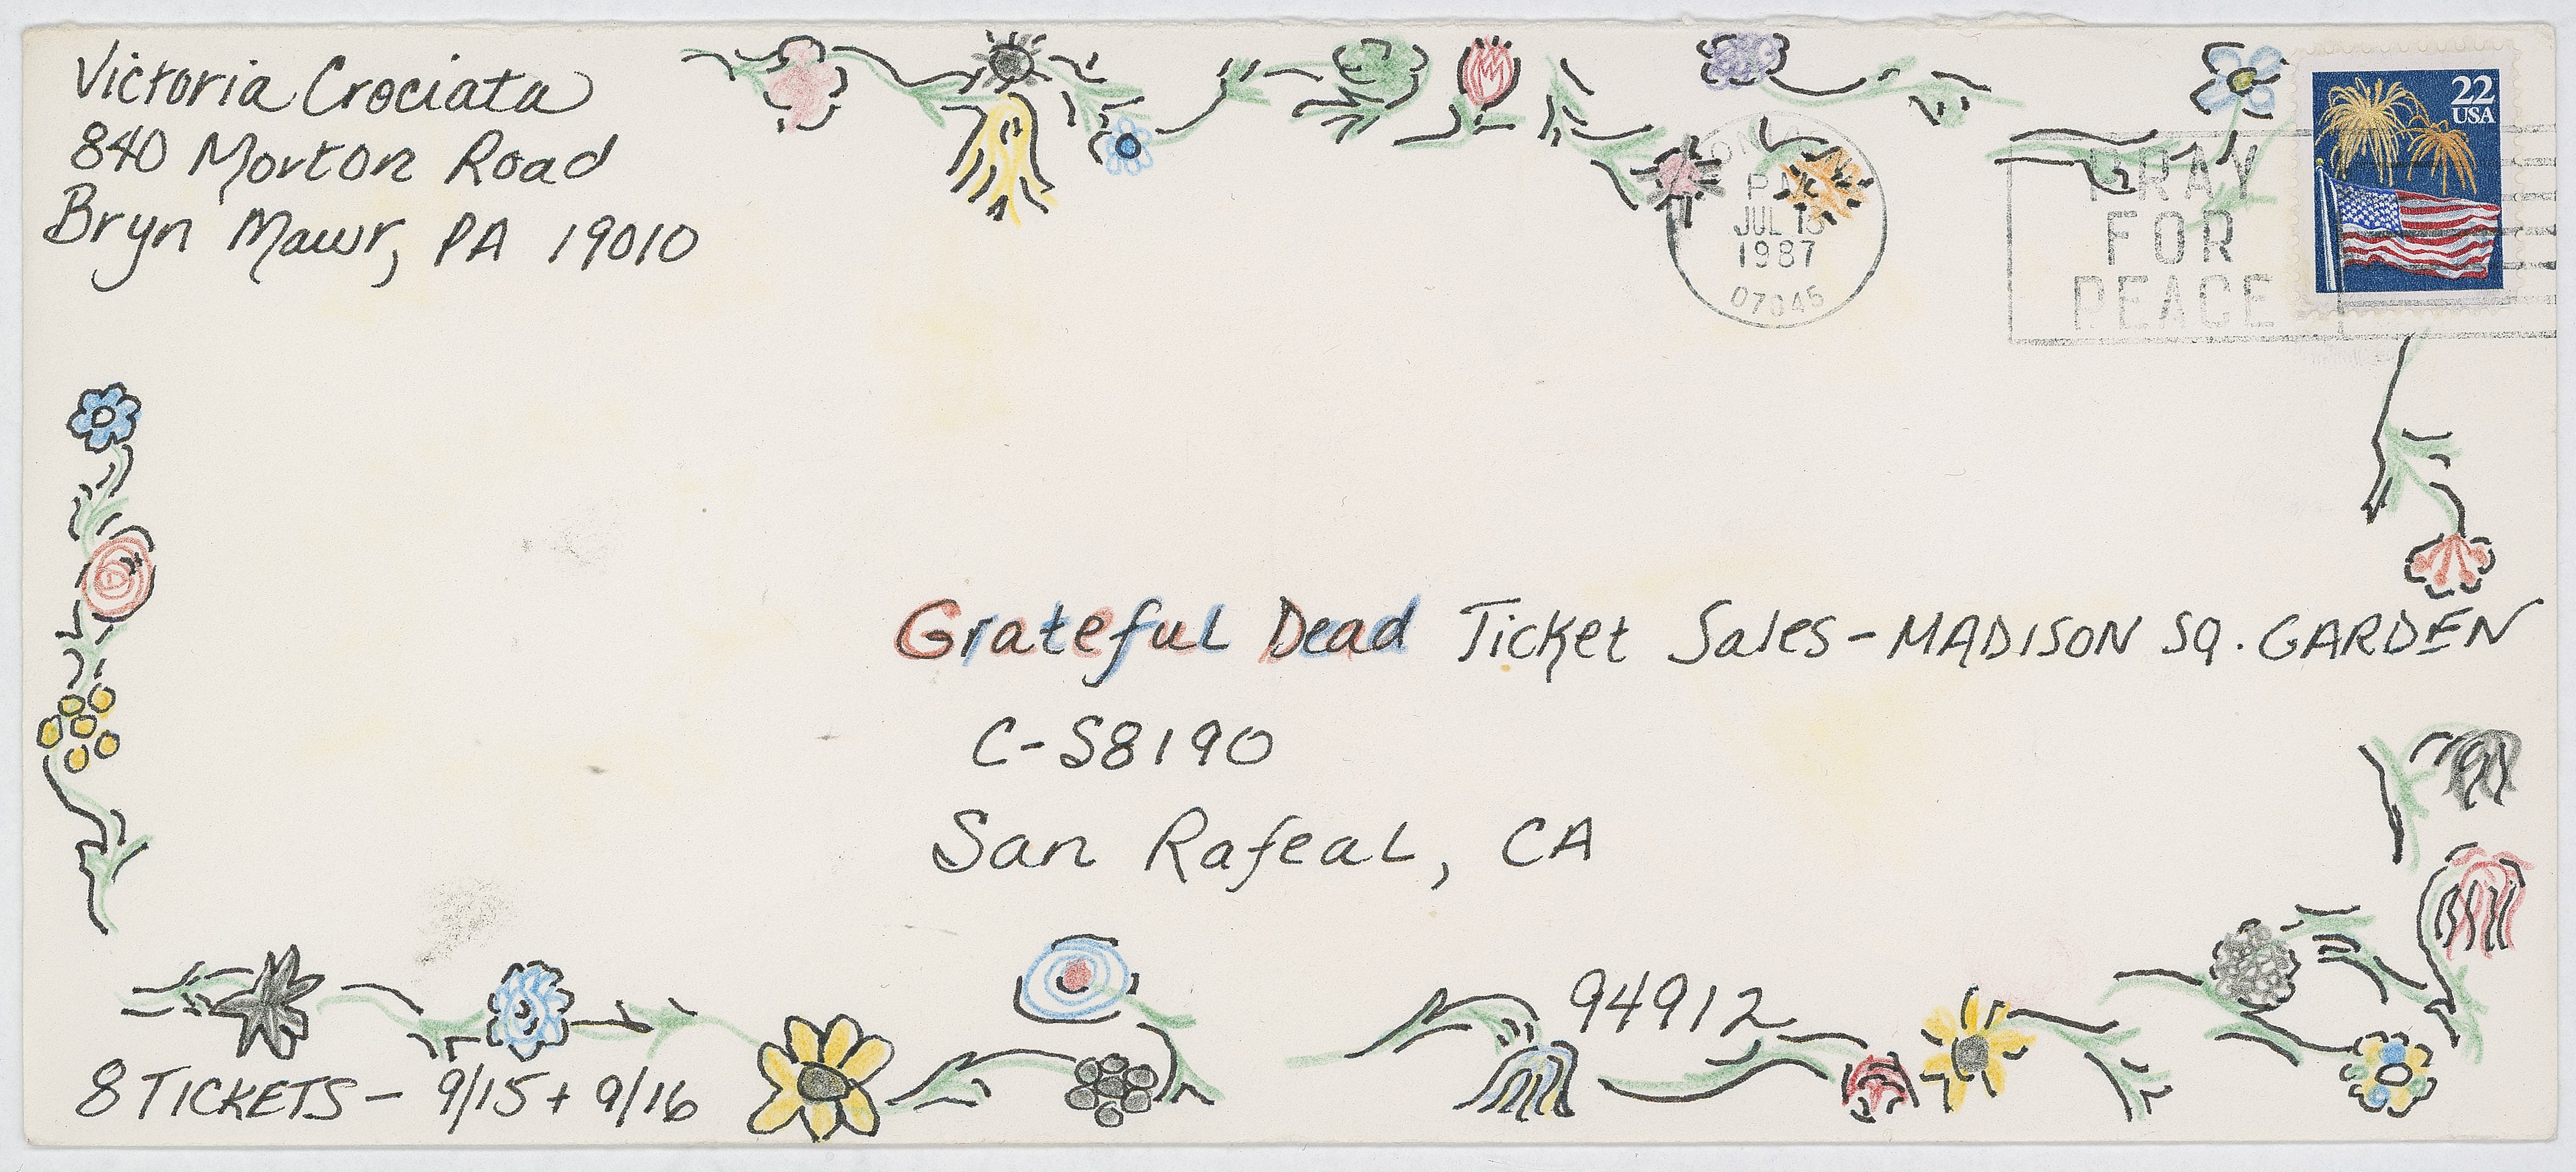 Victoria Crociata
840 Morton Road
Bryn Mawr, PA 19010
22
USA
PM
JUL 13
1987
07045
PRAY
FOR
PEACE
Grateful Dead Ticket Sales - MADISON SQ. GARDEN
C-S8190
San Rafeal, CA
94912
8 TICKETS - 9/15 + 9/16